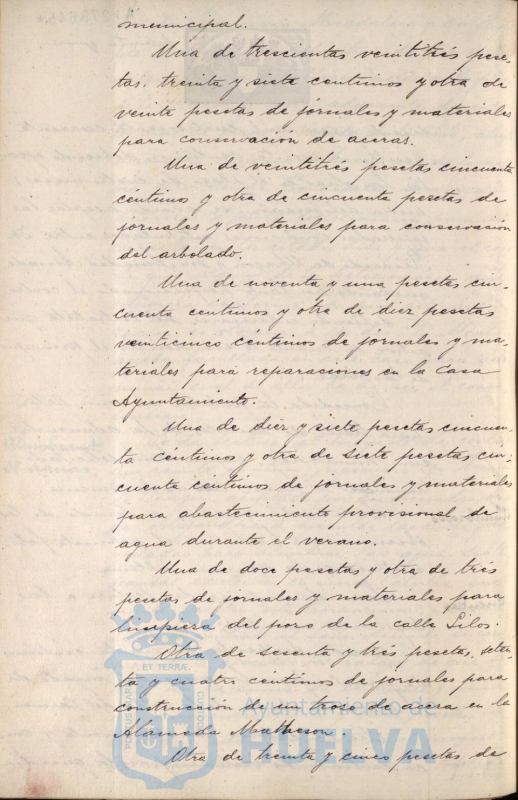 municipal.
Una de trescientas veintitrés pese-
tas, treinta y siete centimos y otra de
veinte pesetas de jornales y materiales
para conservación de aceras.
Una de veintitrés pesetas cincuenta
céntimos y otra de cincuenta pesetas de
jornales y materiales para conservasion
del arbolado.
Una de noventa y una pesetas cin-
cuenta céntimos y otra de diez pesetas
veinticinco céntimos de jornales y ma-
teriales para reparaciones en la Casa
Ayuntamiento.
Una de diez y siete pesetas cincuen-
ta céntimos y otra de siete pesetas cin-
cuenta céntimos de jornales y materiales
para abastecimiento provisional de
agua durante el verano.
Una de doce pesetas y otra de tres
pesetas de jornales y materiales para
limpiera del poso de la calle Silos.
Otra de sesenta y tres pesetas, seten-
ta y cuatro céntimos de jornales para
construcción de un troso de acera en la
Alameda Matheson.
Otra de treinta y cinco pesetas de
PORTUS MARIS ET TERRÆ CUSTODIA
Ayuntamiento de
HUELVA